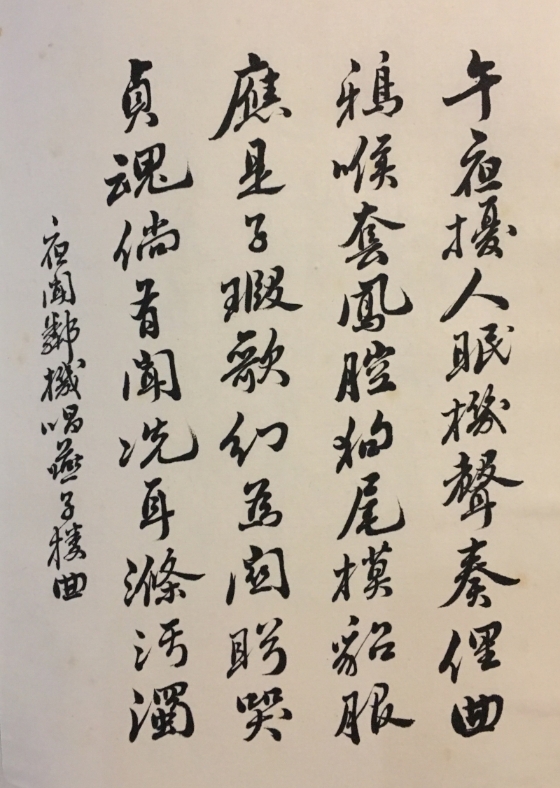 午夜擾人眠機聲奏俚曲
鴉喉套鳳腔狗尾模貂服
應是子瑕歌幻為閎眄哭
貞魂倘有聞洗耳滌污濁
夜聞鄰機唱燕子樓曲